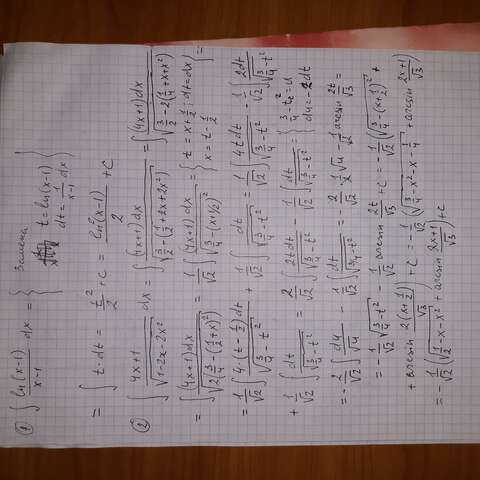 ① ∫ ln(x-1)/(x-1) dx = { Замена t = ln(x-1) dt = 1/(x-1) dx }
= ∫ t·dt = t²/2 + C = ln²(x-1)/2 + C
② ∫ (4x+1)/√(1-2x-2x²) dx = ∫ (4x+1)dx/√(3/2-(1/2+2x+2x²)) = ∫ (4x+1)dx/√(3/2-2(1/4+x+x²)) =
= ∫ (4x+1)dx/√(2(3/4-(1/2+x)²)) = 1/√2 ∫ (4x+1)dx/√(3/4-(x+1/2)²) = { t = x+1/2; dt=dx x = t-1/2 } =
= 1/√2 ∫ 4·(t-1/2)dt/√(3/4-t²) + 1/√2 ∫ dt/√(3/4-t²) = 1/√2 ∫ 4tdt/√(3/4-t²) - 1/√2 ∫ 2dt/√(3/4-t²)
+ 1/√2 ∫ dt/√(3/4-t²) = 2/√2 ∫ 2tdt/√(3/4-t²) - 1/√2 ∫ dt/√(3/4-t²) = { 3/4-t²=u du=-2dt
= -2/√2 ∫ du/√u - 1/√2 ∫ dt/√(3/4-t²) = -2/√2 · 1/2 √u - 1/√2 arcsin 2t/√3 =
= -1/√2 √(3/4-t²) - 1/√2 arcsin 2t/√3 + C = -1/√2 (√(3/4-(x+1/2)²) +
+ arcsin 2(x+1/2)/√3) + C = -1/√2 (√(3/4-x²-x-1/4) + arcsin (2x+1)/√3)
= -1/√2 (√(1/2-x-x²) + arcsin (2x+1)/√3) + C